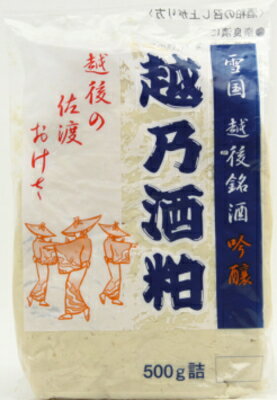 雪国 越後銘酒 吟醸
越乃酒粕
越後の
佐渡
おけさ
500g詰